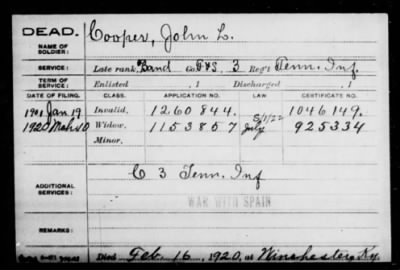 DEAD.
NAME OF SOLDIER: Cooper, John L.
SERVICE: Late rank, Band Co. F&S, 3 Reg't Tenn. Inf.
TERM OF SERVICE: Enlisted , 1 Discharged , 1
DATE OF FILING. CLASS. APPLICATION NO. LAW CERTIFICATE NO.
1901 Jan 19 Invalid, 1260844. 1046149.
1920 Mch Widow, 1153857 July 925334
Minor,
ADDITIONAL SERVICES: C 3 Tenn. Inf
WAR WITH SPAIN
REMARKS:
Died Feb. 16, 1920, at Winchester, Ky.